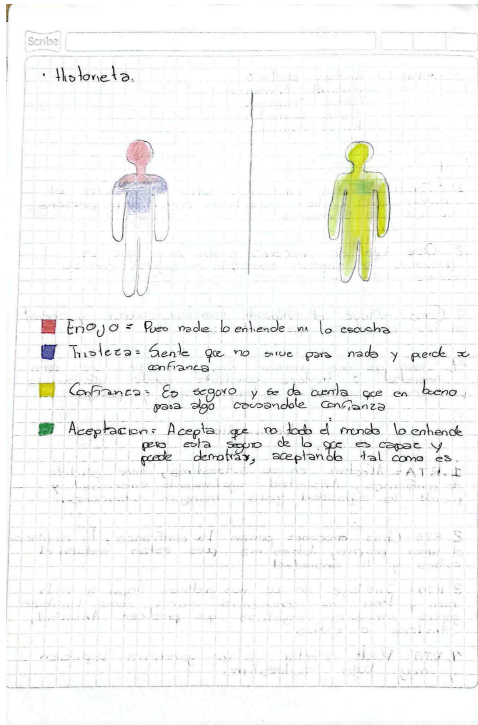 Scribe
· Historieta.
Enojo = Pues nadie lo entiende ni lo escucha
Tristeza = Siente que no sirve para nada y pierde
confianza
Confianza = Es seguro y se da cuenta que en bueno
para algo causandole confianza
Aceptacion = Acepta que no todo el mundo lo entiende
pero esta seguro de lo que es capaz y
puede demotrar, aceptando tal como es.